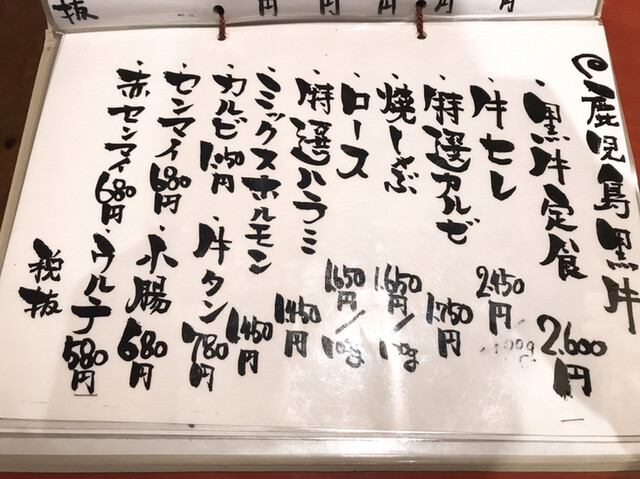 鹿児島黒牛
・黒牛定食 2.600円
・牛セレ 2.450円
・特選カルビ 1.750円
・焼しゃぶ 1.650円/100g
・ロース 1.650円/100g
・特選ハラミ 1.450円
・ミックスホルモン 1.450円
・カルビ 1.150円
・牛タン 780円
・センマイ 680円
・小腸 680円
・赤センマイ 680円
・ウルテ 580円
税抜
抜
円
円
円
円
円